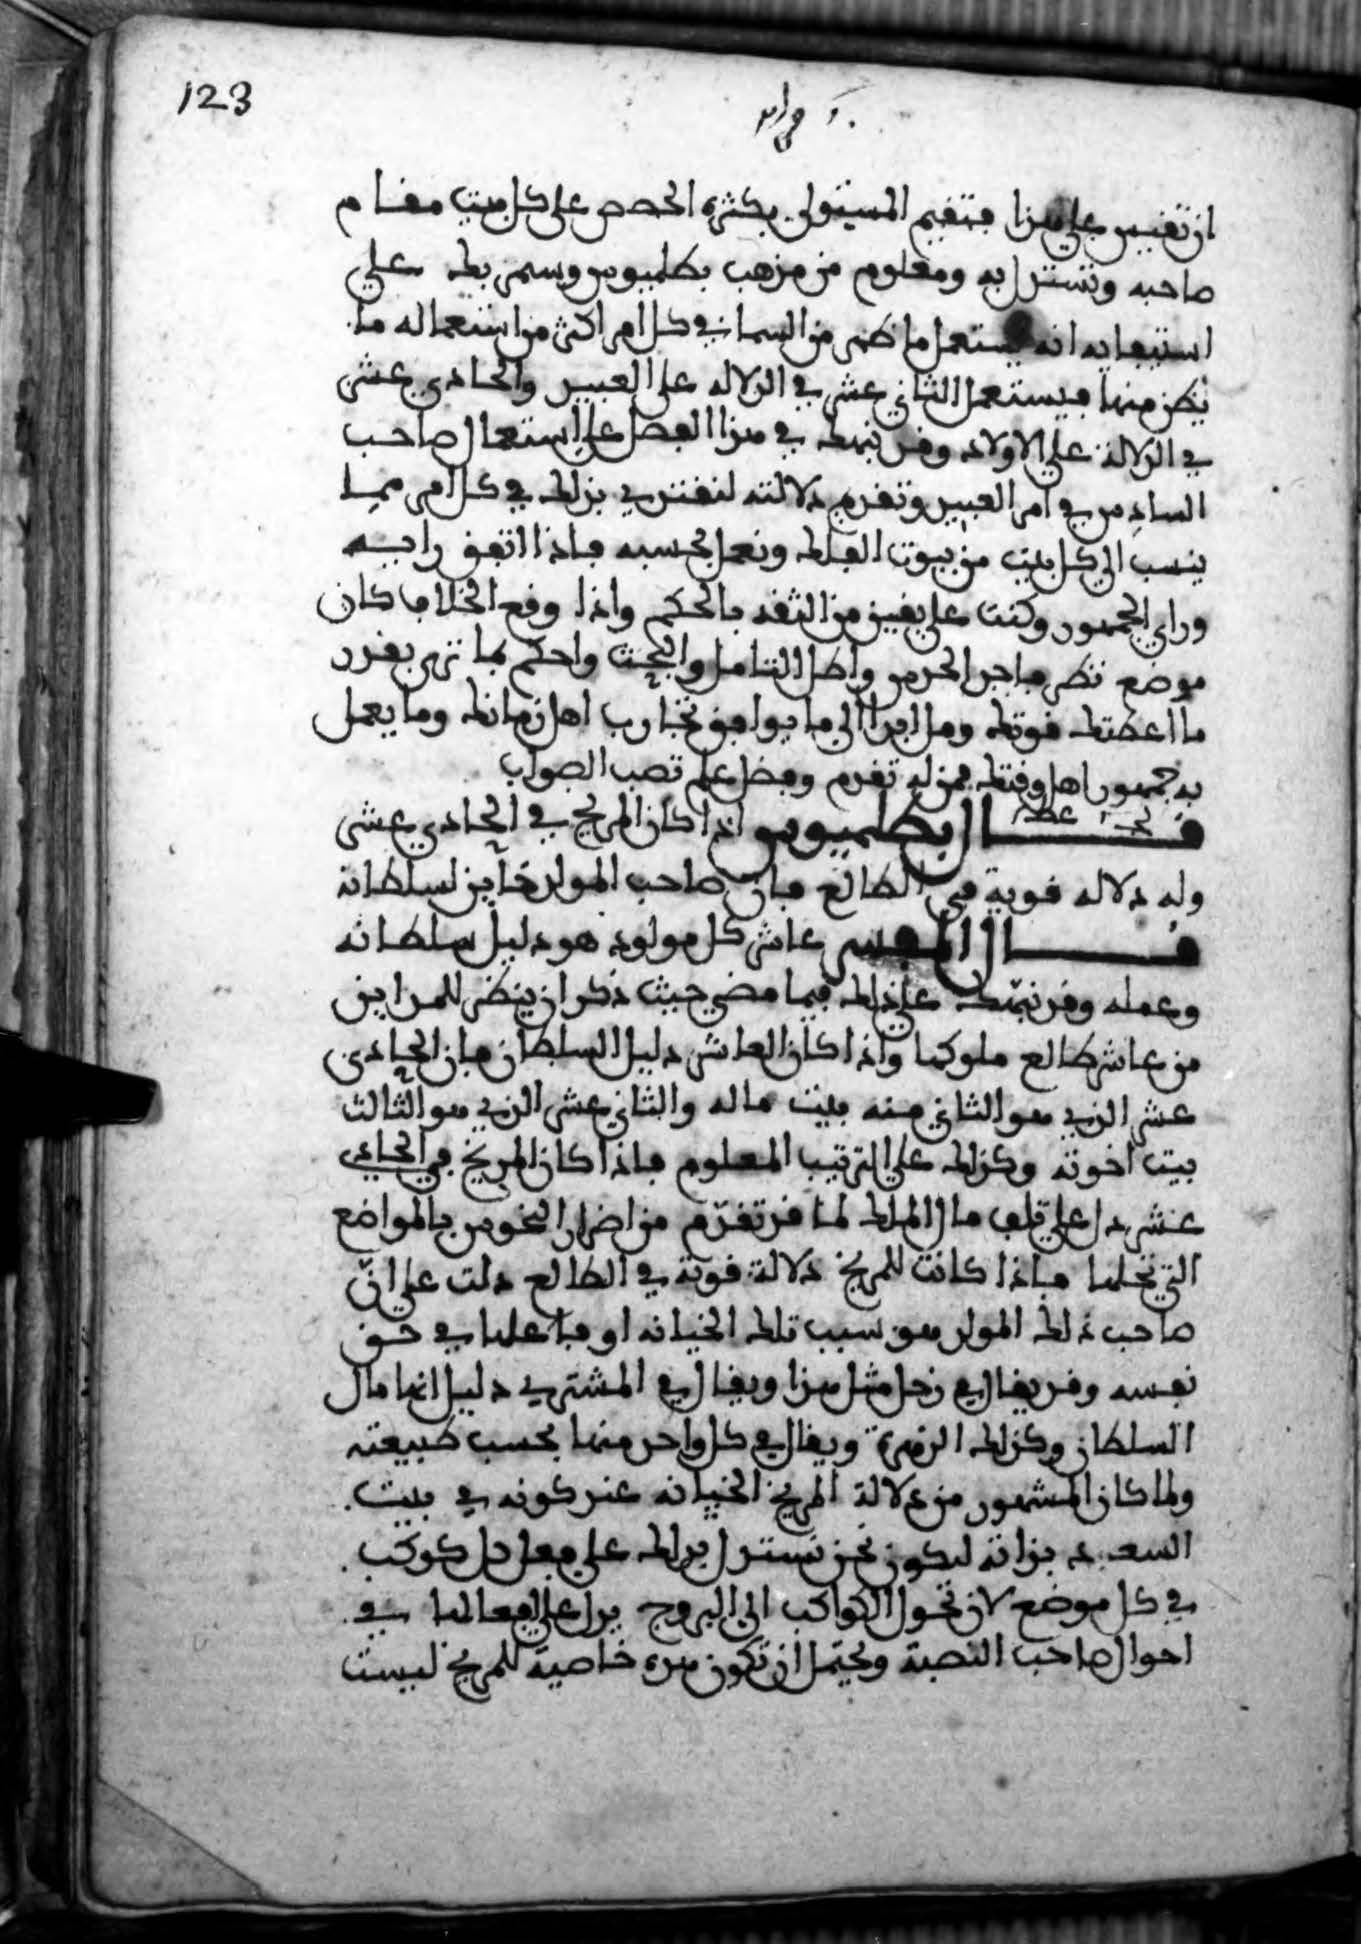 123
ان تقيس على هذا فتقيم المستولى بكثرة الحصص على كل بيت مقام
صاحبه وتستدل به ومعلوم من مذهب بطلميوس وسيمر بك على
استيعابه انه يستعمل ما ظهر من السما في كل امر اكثر من استعماله ما
بطن منها فيستعمل الثاني عشر في الدلالة على العبيد والحادي عشر
في الدلالة على الاولاد وقد نبهك في هذا الفصل على استعمال صاحب
السادس في امر العبيد وتقدم دلالته لتقتدي بذلك في كل امر مما
ينسب الى كل بيت من بيوت الفلك وتعمل بحسبه فاذا اتفق رايه
وراي الجمهور وكنت على يقين من الثقة بالحكم واذا وقع الخلاف كان
موضع نظر فاجد الحدس واطل التامل والبحث واحكم بما ترى بقدر
ما اعطتك قوتك ومل ابدا الى ما يوافق تجارب اهل زمانك وما يعمل
به جمهور اهل وقتك فمن له تقدم وفضل علم تصب الصواب
قال بطلميوس اذا كان المريخ في الحادي عشر
وله دلالة قوية في الطالع فان صاحب المولد خاين لسلطانه
قال المفسر عاشر كل مولود هو دليل سلطانه
وعمله وقد نبهتك على ذلك فيما مضى حيث ذكر ان ينظر للمداين
من عاشر طالع ملوكها واذا كان العاشر دليل السلطان فان الحادي
عشر الذي هو الثاني منه بيت ماله والثاني عشر الذي هو الثالث
بيت اخوته وكذلك على الترتيب المعلوم فاذا كان المريخ في الحادي
عشر دل على تلف مال الملك لما قد تقدّم من اضرار النحوس بالمواضع
التي تحلها فاذا كانت للمريخ دلالة قوية في الطالع دلت على انّ
صاحب ذلك المولد هو سبب تلك الخيانة او فاعلها في حق
نفسه وقد يقال في زحل مثل هذا ويقال في المشتري دليل انما مال
السلطان وكذلك الزهرة ويقال في كل واحد منها بحسب طبيعته
ولما كان المشهور من دلالة المريخ الخيانة عند كونه في بيت
السعد بذاته ليكون نحن نستدل بذلك على فعل كل كوكب
في كل موضع لان تحول الكواكب الى البروج يدل على افعالها في
احوال صاحب النصبة ويحتمل ان تكون هذه خاصية للمريخ ليست